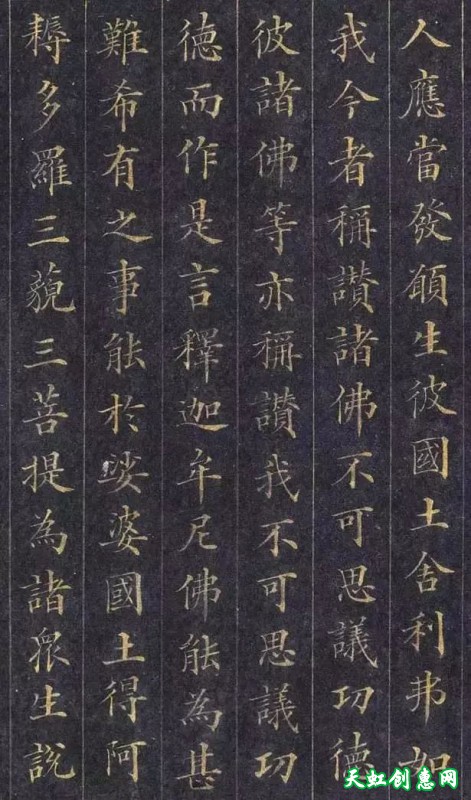 人應當發願生彼國土舍利弗如
我今者稱讃諸佛不可思議功德
彼諸佛等亦稱讃我不可思議功
德而作是言釋迦牟尼佛能為甚
難希有之事能於娑婆國土得阿
耨多羅三藐三菩提為諸眾生說
天虹创惠网